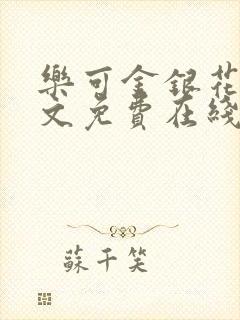 樂可金銀花
文免費在綫
蘇千笑